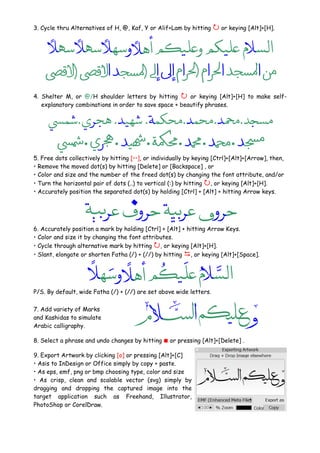 3. Cycle thru Alternatives of H, @, Kaf, Y or Alif+Lam by hitting ↻ or keying [Alt]+[H].
السلام عليكم وعليكم أهلا وسهلا سهلا سهلا
من المسجد الحرام الحرام إلى إلى المسجد الاقصى الاقصى
4. Shelter M, or @/H shoulder letters by hitting ↻ or keying [Alt]+[H] to make self-
explanatory combinations in order to save space + beautify phrases.
مسجد.محمد.محمد.محكمة.شهيد.هجري.شمسي
مسجد.محمد.محمد.محكمة.شهيد.هجري.شمسي
5. Free dots collectively by hitting [••], or individually by keying [Ctrl]+[Alt]+[Arrow], then,
• Remove the moved dot(s) by hitting [Delete] or [Backspace] , or
• Color and size and the number of the freed dot(s) by changing the font attribute, and/or
• Turn the horizontal pair of dots (..) to vertical (:) by hitting ↻, or keying [Alt]+[H].
• Accurately position the separated dot(s) by holding [Ctrl] + [Alt] + hitting Arrow keys.
حروف عربية حروف عربية
6. Accurately position a mark by holding [Ctrl] + [Alt] + hitting Arrow Keys.
• Color and size it by changing the font attributes.
• Cycle through alternative mark by hitting ↻, or keying [Alt]+[H].
• Slant, elongate or shorten Fatha (/) + (//) by hitting ⇆, or keying [Alt]+[Space].
السَّلامُ عَلَيكُم أهلاً وسَهلاً
P/S. By default, wide Fatha (/) + (//) are set above wide letters.
7. Add variety of Marks
and Kashidas to simulate
Arabic calligraphy.
وَعليكم السَّلام
8. Select a phrase and undo changes by hitting ■ or pressing [Alt]+[Delete] .
9. Export Artwork by clicking [o] or pressing [Alt]+[C]
• Asis to InDesign or Office simply by copy + paste.
• As eps, emf, png or bmp choosing type, color and size
• As crisp, clean and scalable vector (svg) simply by
dragging and dropping the captured image into the
target application such as Freehand, Illustrator,
PhotoShop or CorelDraw.
Exporting Artwork
Drag + Drop Image elsewhere
وَعليكم السَّلام
EMF (Enhanced Meta File)
Export as
% Zoom
Color
Copy